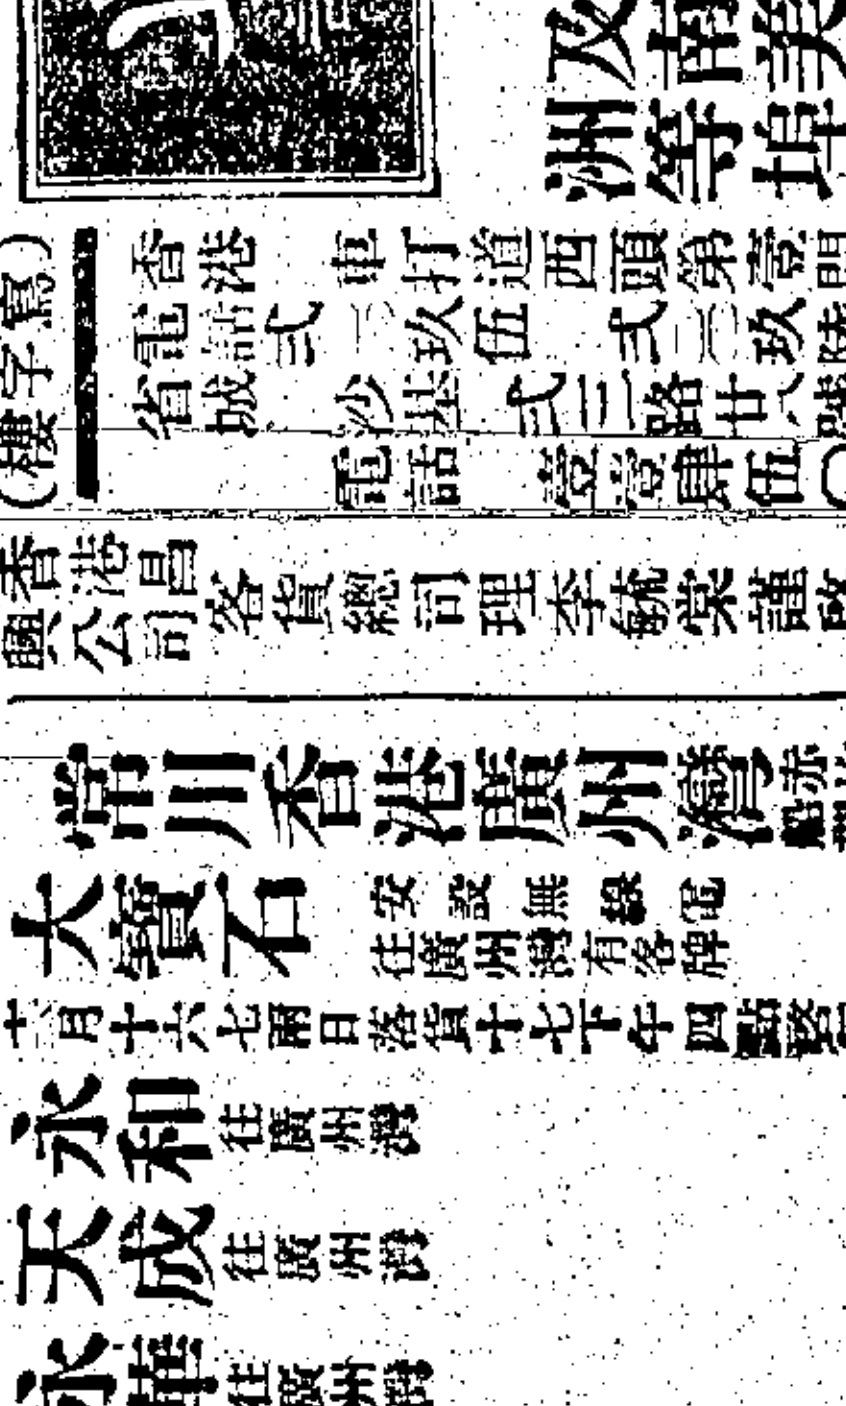 及南美
洲等埠
(寫字樓)
香港 車打道西頭第壹間
電話 弍〇玖伍 弍〇玖陸
省城 沙基 弍三路廿八號
電話 壹壹肆伍〇
香港昌
興公司
客貨總司理李毓棠謹啟
常川香港廣州灣赤
船
大寶石
安設無線電
往廣州灣有客牌
六月十六七兩日落貨十七下午四點
永和往廣州灣
天成往廣州灣
永華往廣州灣